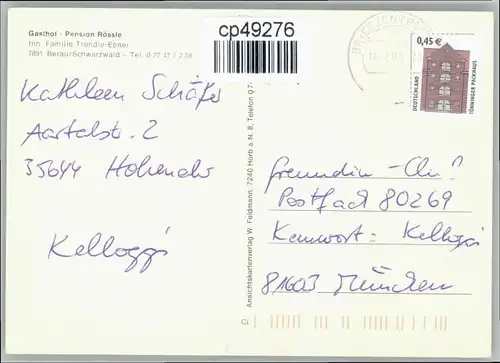 Gasthof - Pension Rössle
Inh. Familie Tröndle-Ebner
7891 Berau/Schwarzwald - Tel. 0 77 47 / 2 08
cp49276
0,45 €
DEUTSCHLAND
TÖNNINGER PACKHAUS
BRIEFZENTRUM
Kathleen Schäfer
Aartalstr. 2
35644 Hohenahr
Kellogg's
Ansichtskartenverlag W. Feldmann, 7240 Horb a. N. 8, Telefon 0 7
freundin-
Postfach 80269
Kennwort: Kellogg's
81603 München